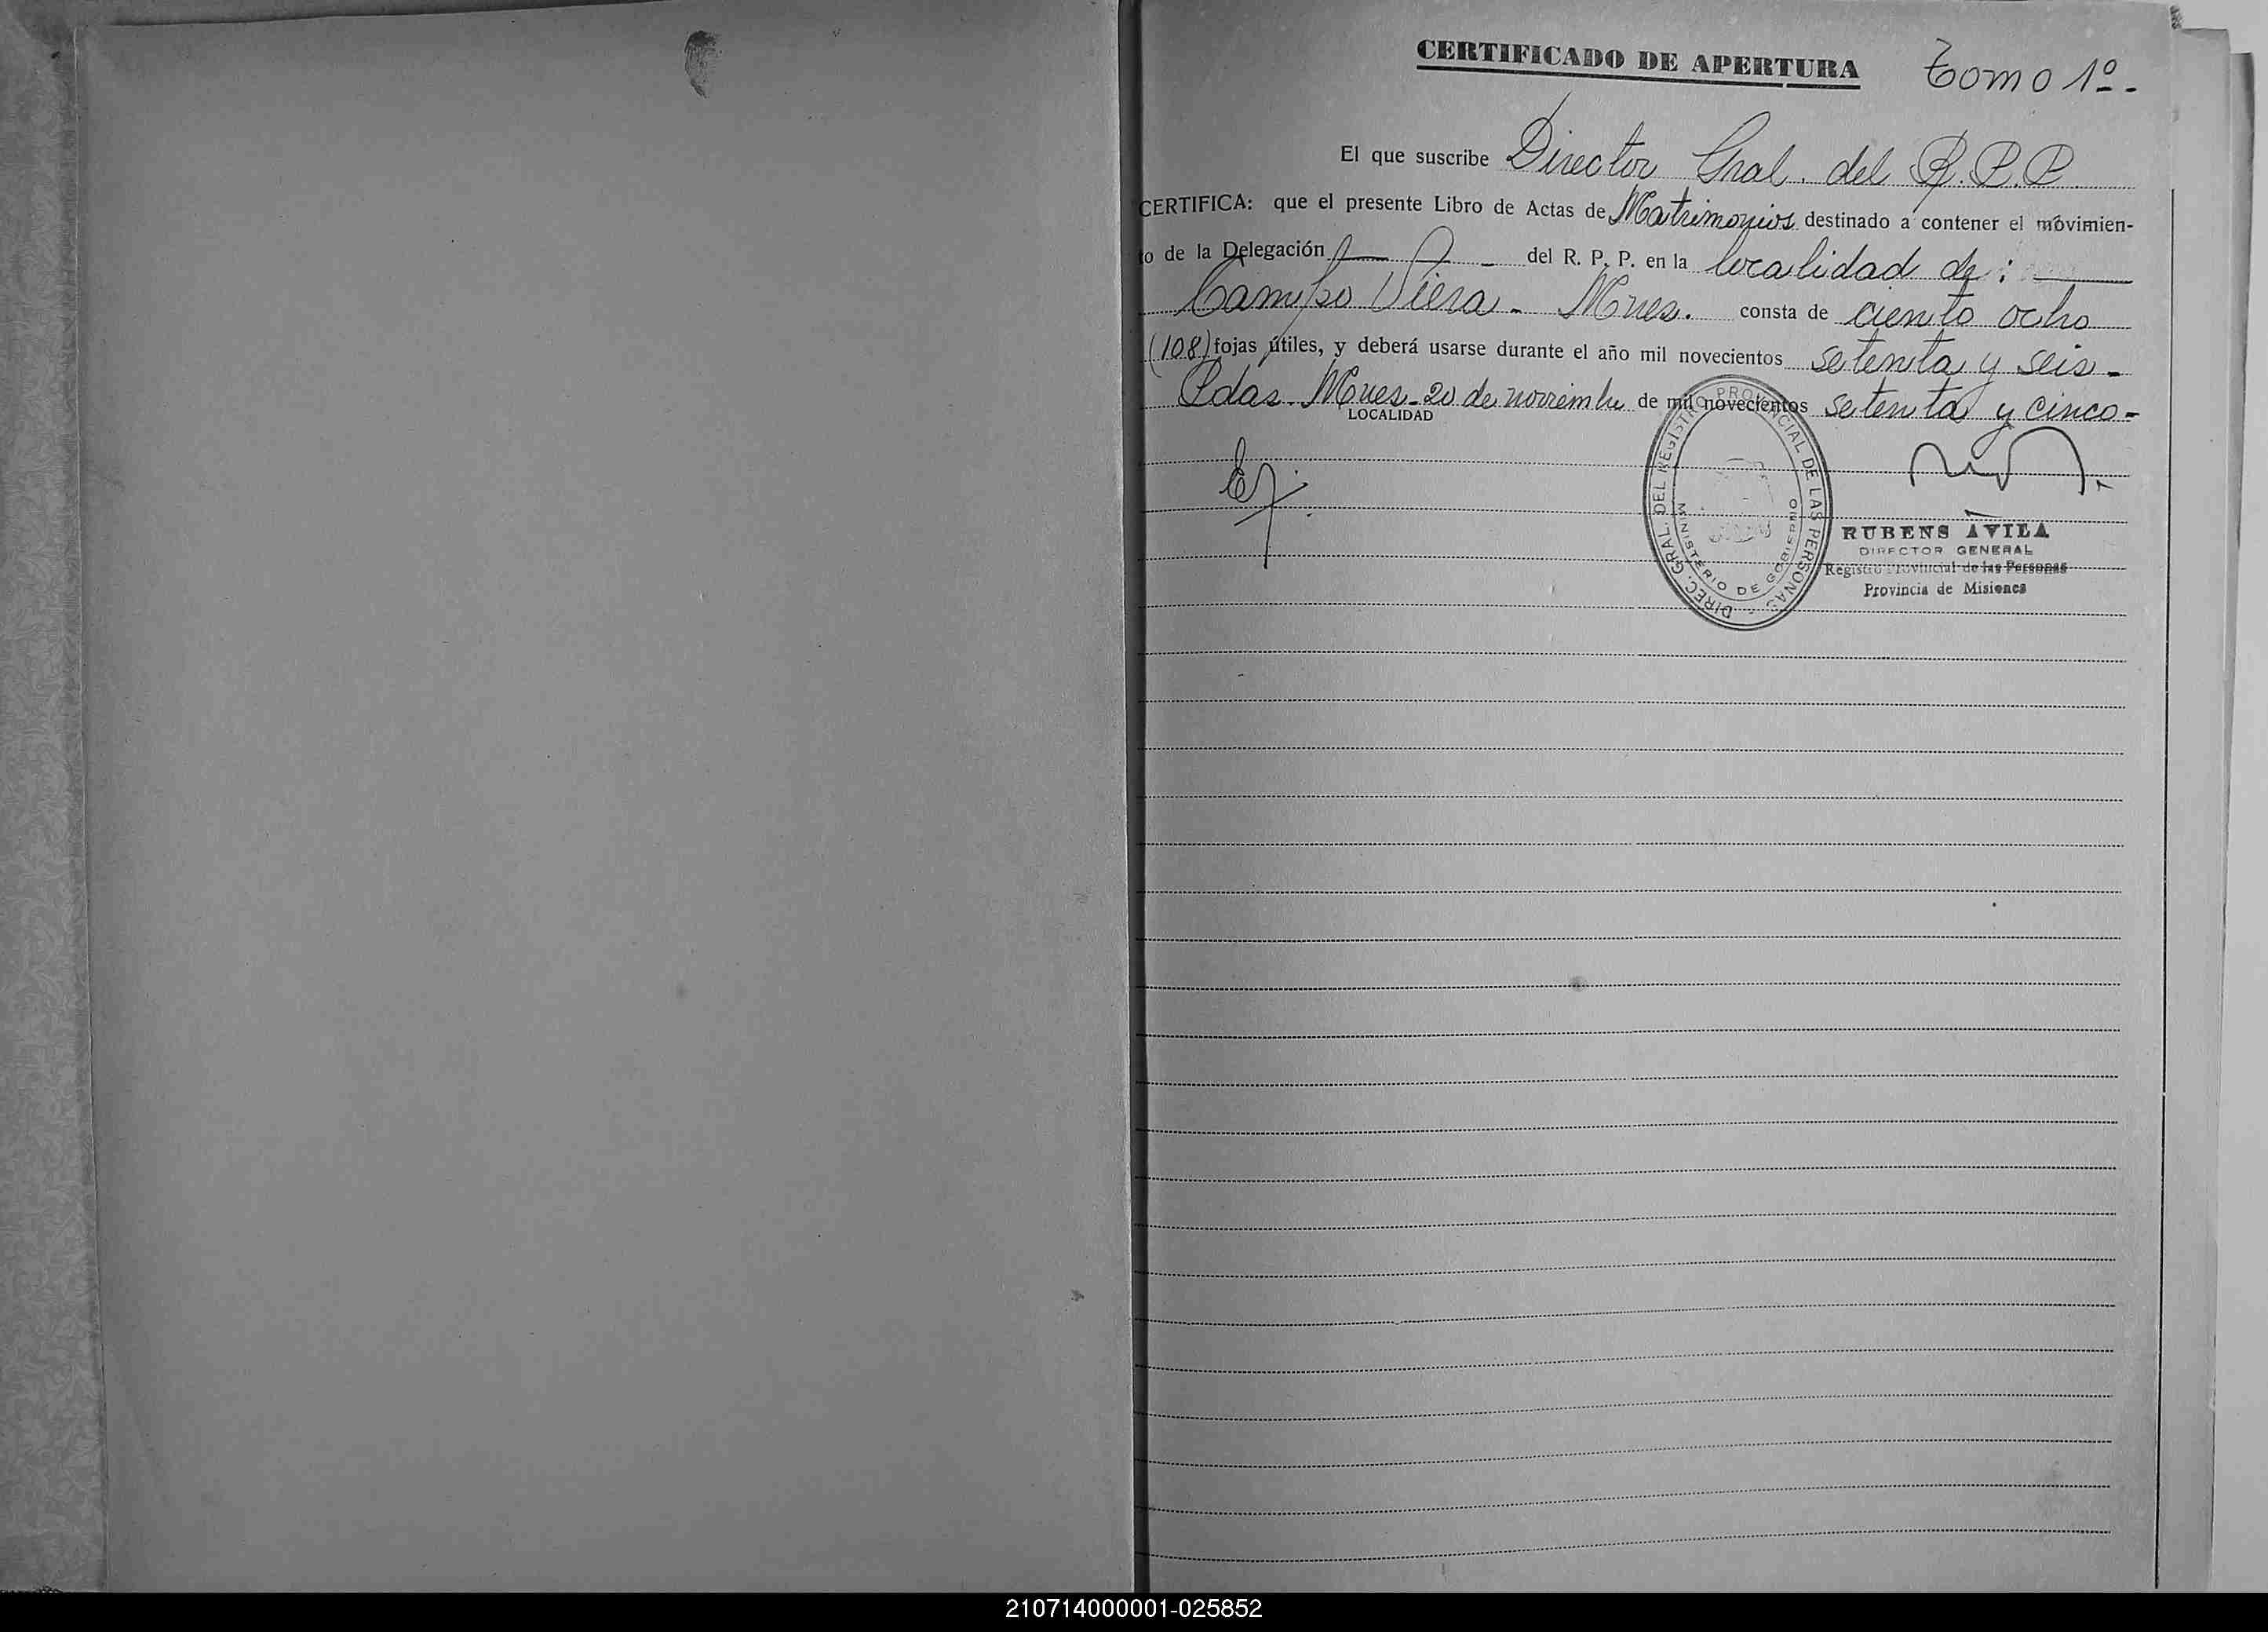 CERTIFICADO DE APERTURA Tomo 1º.-
El que suscribe Director Gral. del R.P.P.
CERTIFICA: que el presente Libro de Actas de Matrimonios destinado a contener el movimien-
to de la Delegación del R. P. P. en la localidad de:
Campo Viera - Mnes. consta de ciento ocho
(108) fojas útiles, y deberá usarse durante el año mil novecientos setenta y seis -
Pdas. Mnes - 20 de noviembre de mil novecientos setenta y cinco -
LOCALIDAD
DIREC. GRAL. DEL REGISTRO PROVINCIAL DE LAS PERSONAS
MINISTERIO DE GOBIERNO
RUBENS AVILA
DIRECTOR GENERAL
Registro Provincial de las Personas
Provincia de Misiones
210714000001-025852